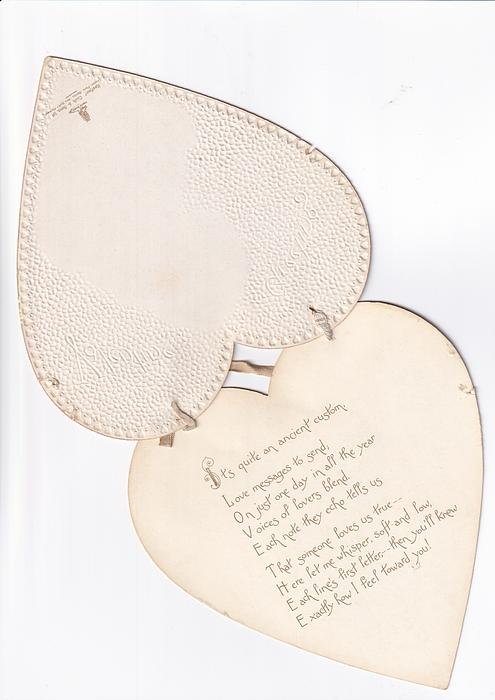 It's quite an ancient custom,
Love messages to send,
On just one day in all the year
Voices of lovers blend.
Each note they echo tells us
That someone loves us true---
Here let me whisper, soft and low,
Each line's first letter---then you'll know
Exactly how I feel toward you!